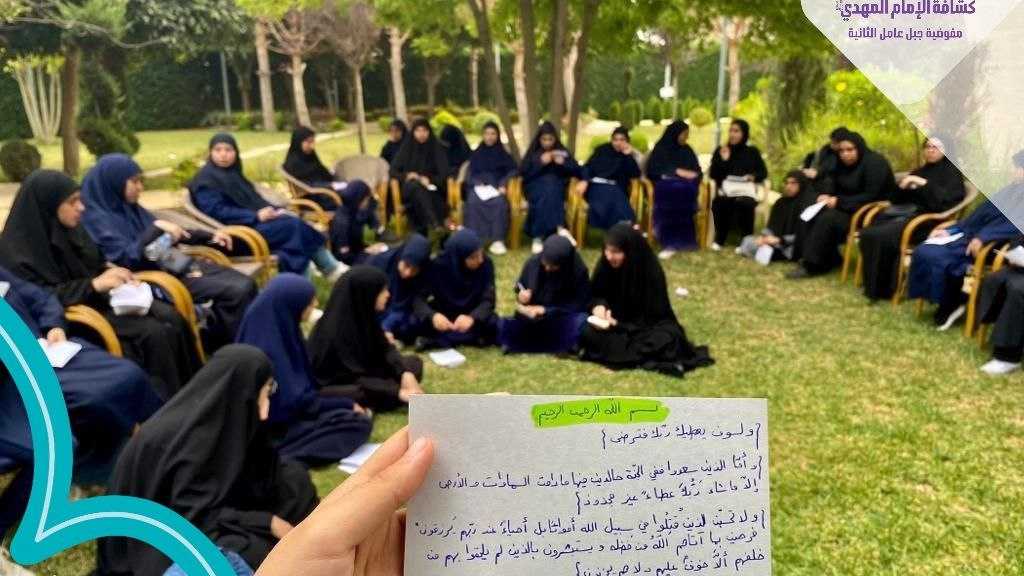 كشافة الإمام المهدي
مفوضية جبل عامل الثانية
بسم الله الرحمن الرحيم
{ولسوف يعطيك ربّك فترضى}
{وأمّا الذين سعدوا ففي الجنّة خالدين فيها ما دامت السماوات والأرض
إلّا ما شاء ربّك عطاءً غير مجذوذ}
{ولا تحسبنّ الذين قُتلوا في سبيل الله أمواتًا بل أحياءٌ عند ربّهم يُرزقون*
فرحين بما آتاهم اللّه من فضله ويستبشرون بالذين لم يلحقوا بهم من
خلفهم ألّا خوفٌ عليهم ولا هم يحزنون}